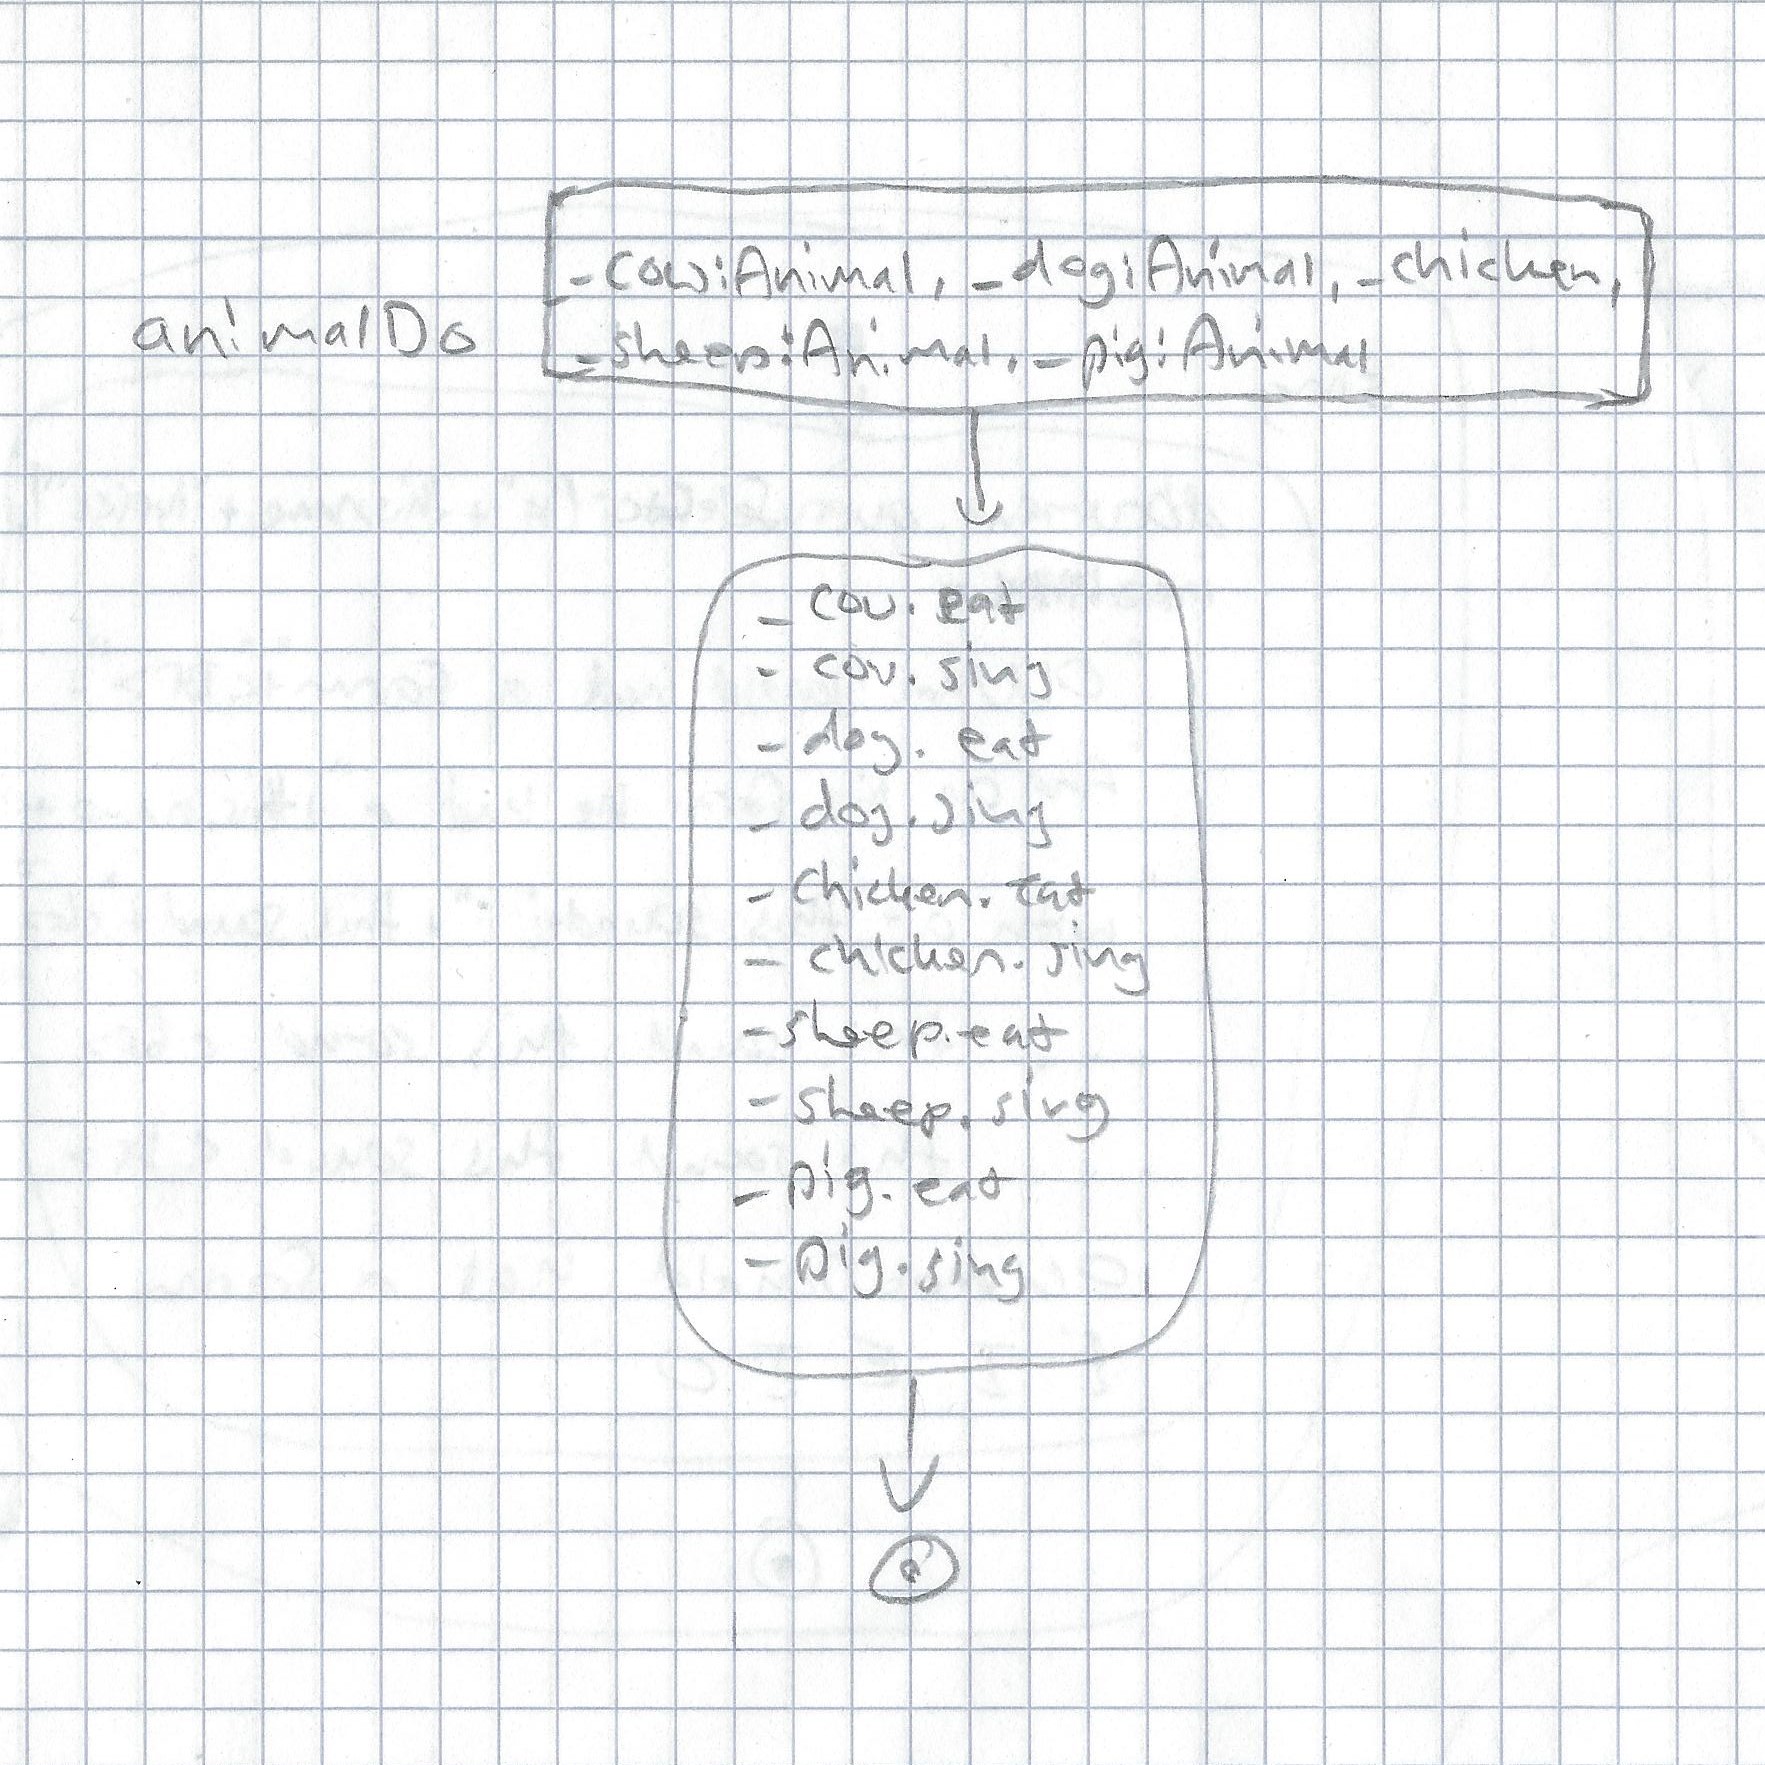 animalDo
_cow:Animal, _dog:Animal, _chicken,
_sheep:Animal, _pig:Animal
_ cow.eat
- cow.sing
- dog.eat
- dog.sing
- Chicken.eat
- chicken.sing
- sheep.eat
- sheep.sing
- pig.eat
- pig.sing